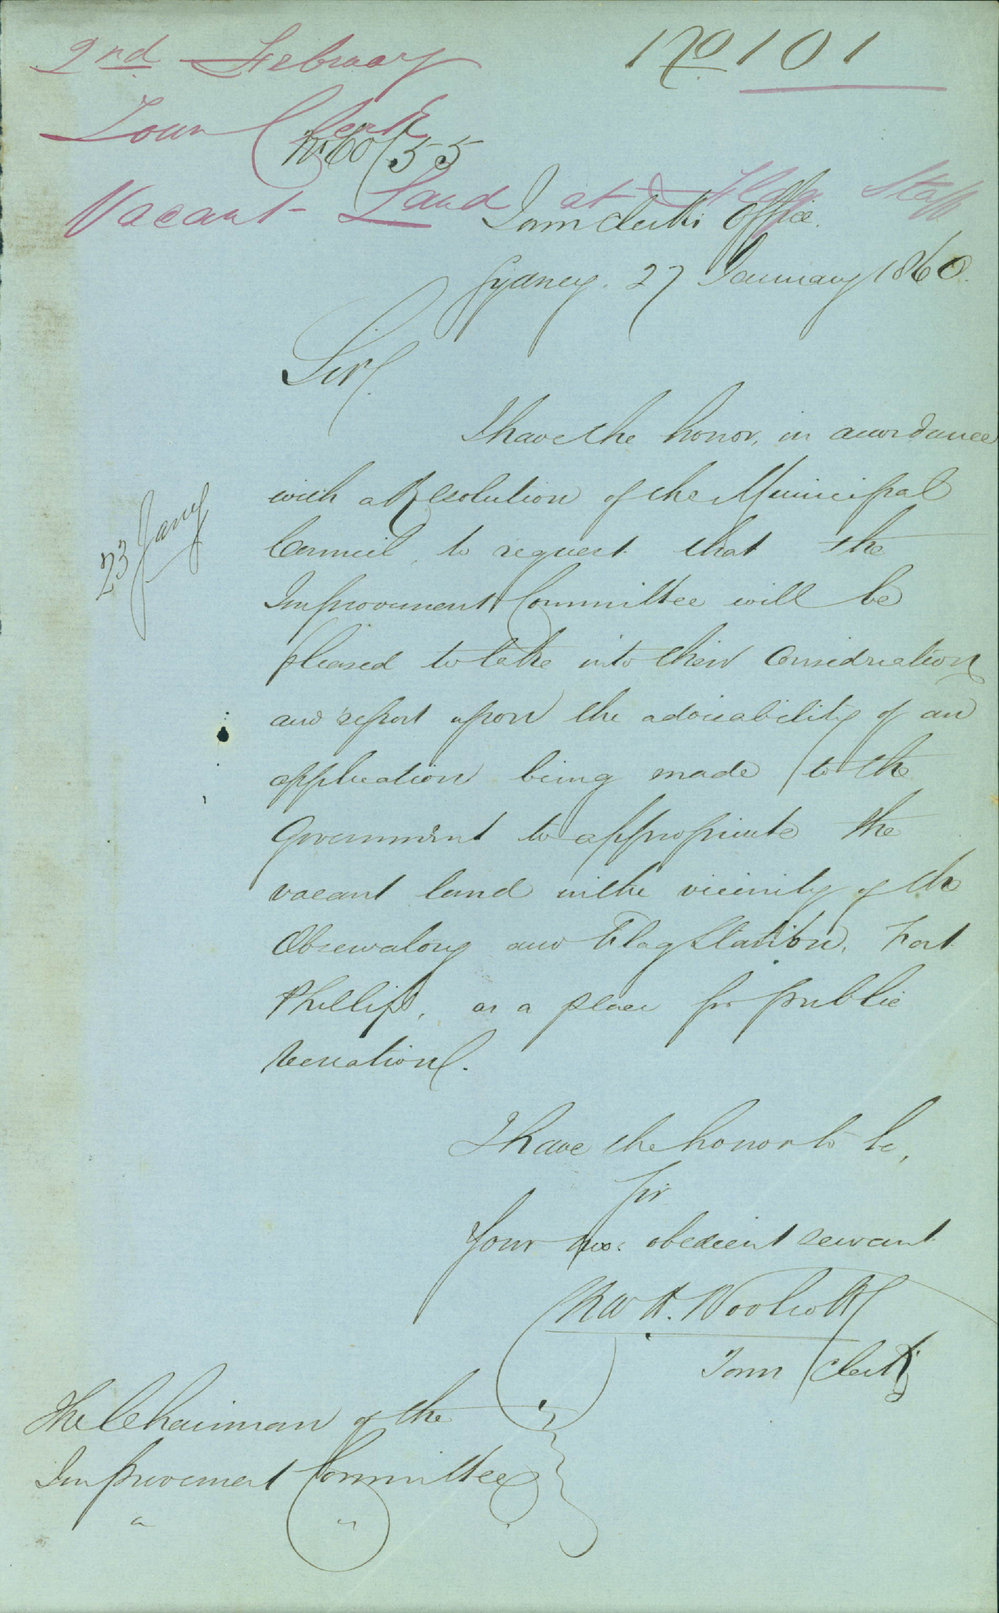 2nd February
No 101
Town Clerk
No 60/55
Vacant Land at Flag Staff
Town Clerk's Office.
Sydney. 27 January 1860.
Sir,
I have the honor, in accordance
with a Resolution of the Municipal
23 Jany
Council, to request that the
Improvement Committee will be
pleased to take into their Consideration
and report upon the advisability of an
application being made to the
Government to appropriate the
vacant land in the vicinity of the
Observatory and Flag Station, Fort
Phillip, as a place for public
recreation.
I have the honor to be,
Sir
Your obedient servant
Woolcott
Town Clerk
The Chairman of the
Improvement Committee
" "